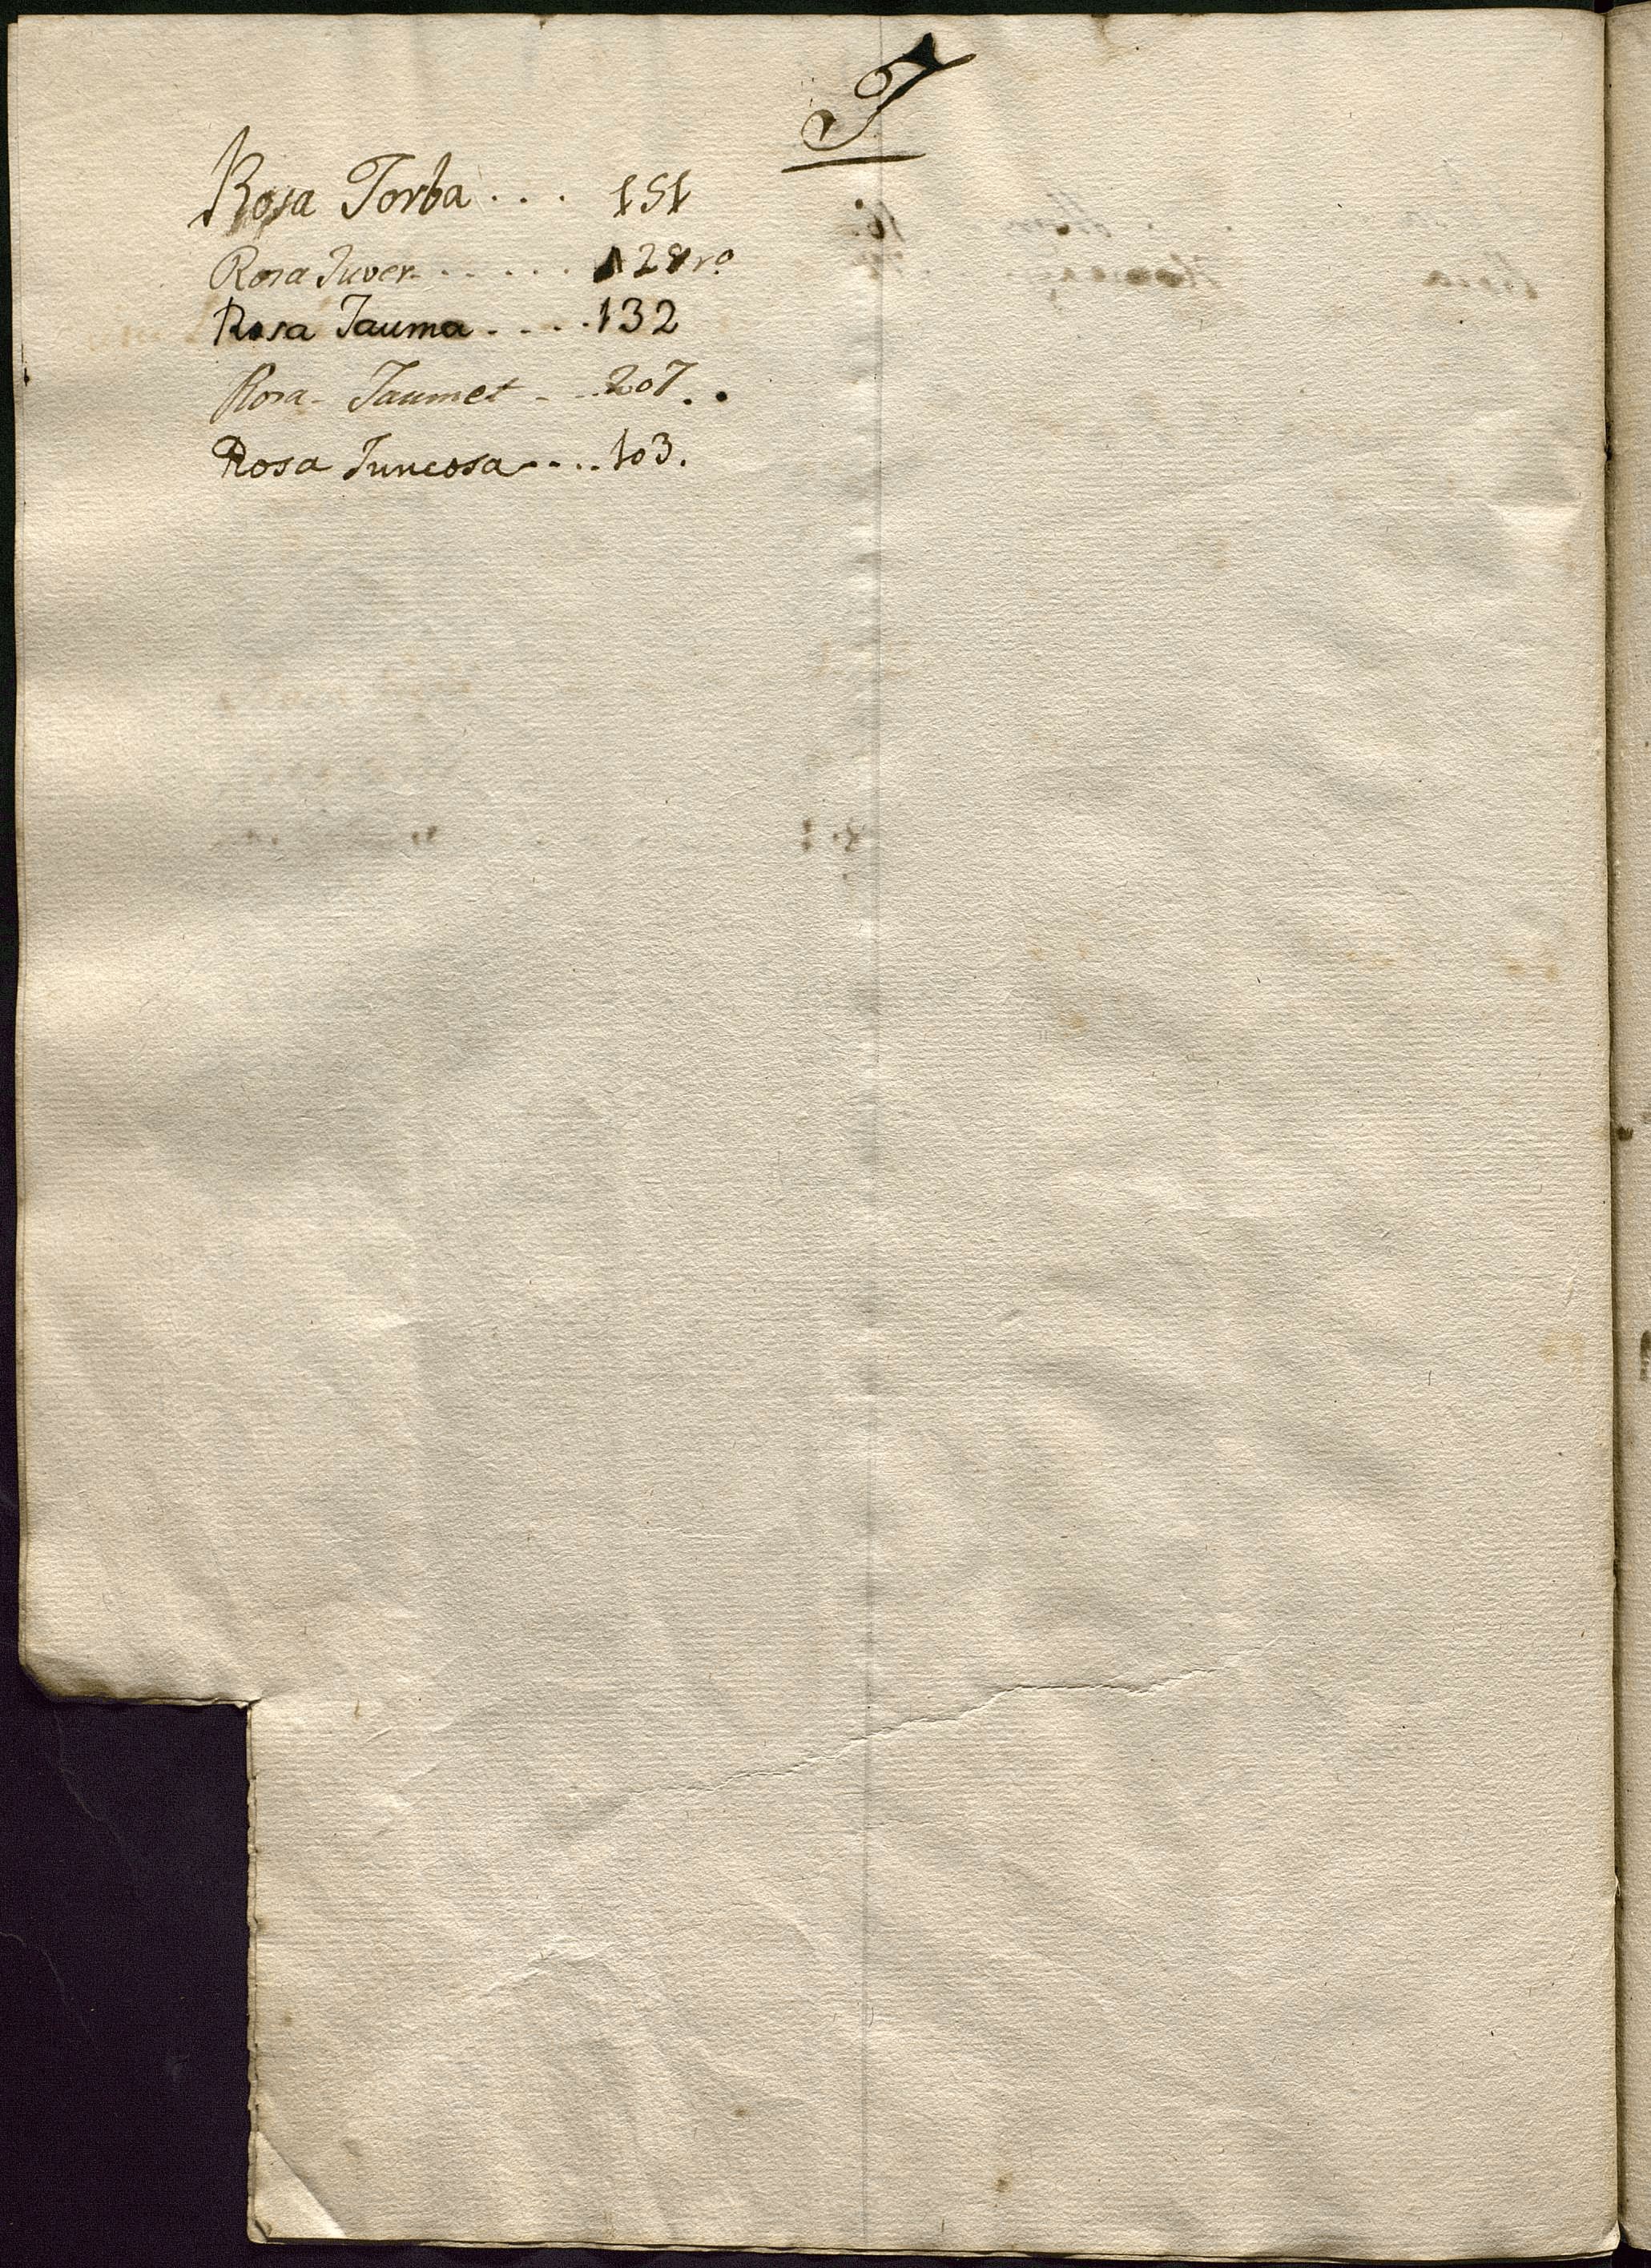 J
Rosa Jorba . . . 151
Rosa Juver . . . . . 128 vo
Rosa Jauma . . . . 132
Rosa Jaumet - - 207 . .
Rosa Juncosa - - . . 103.